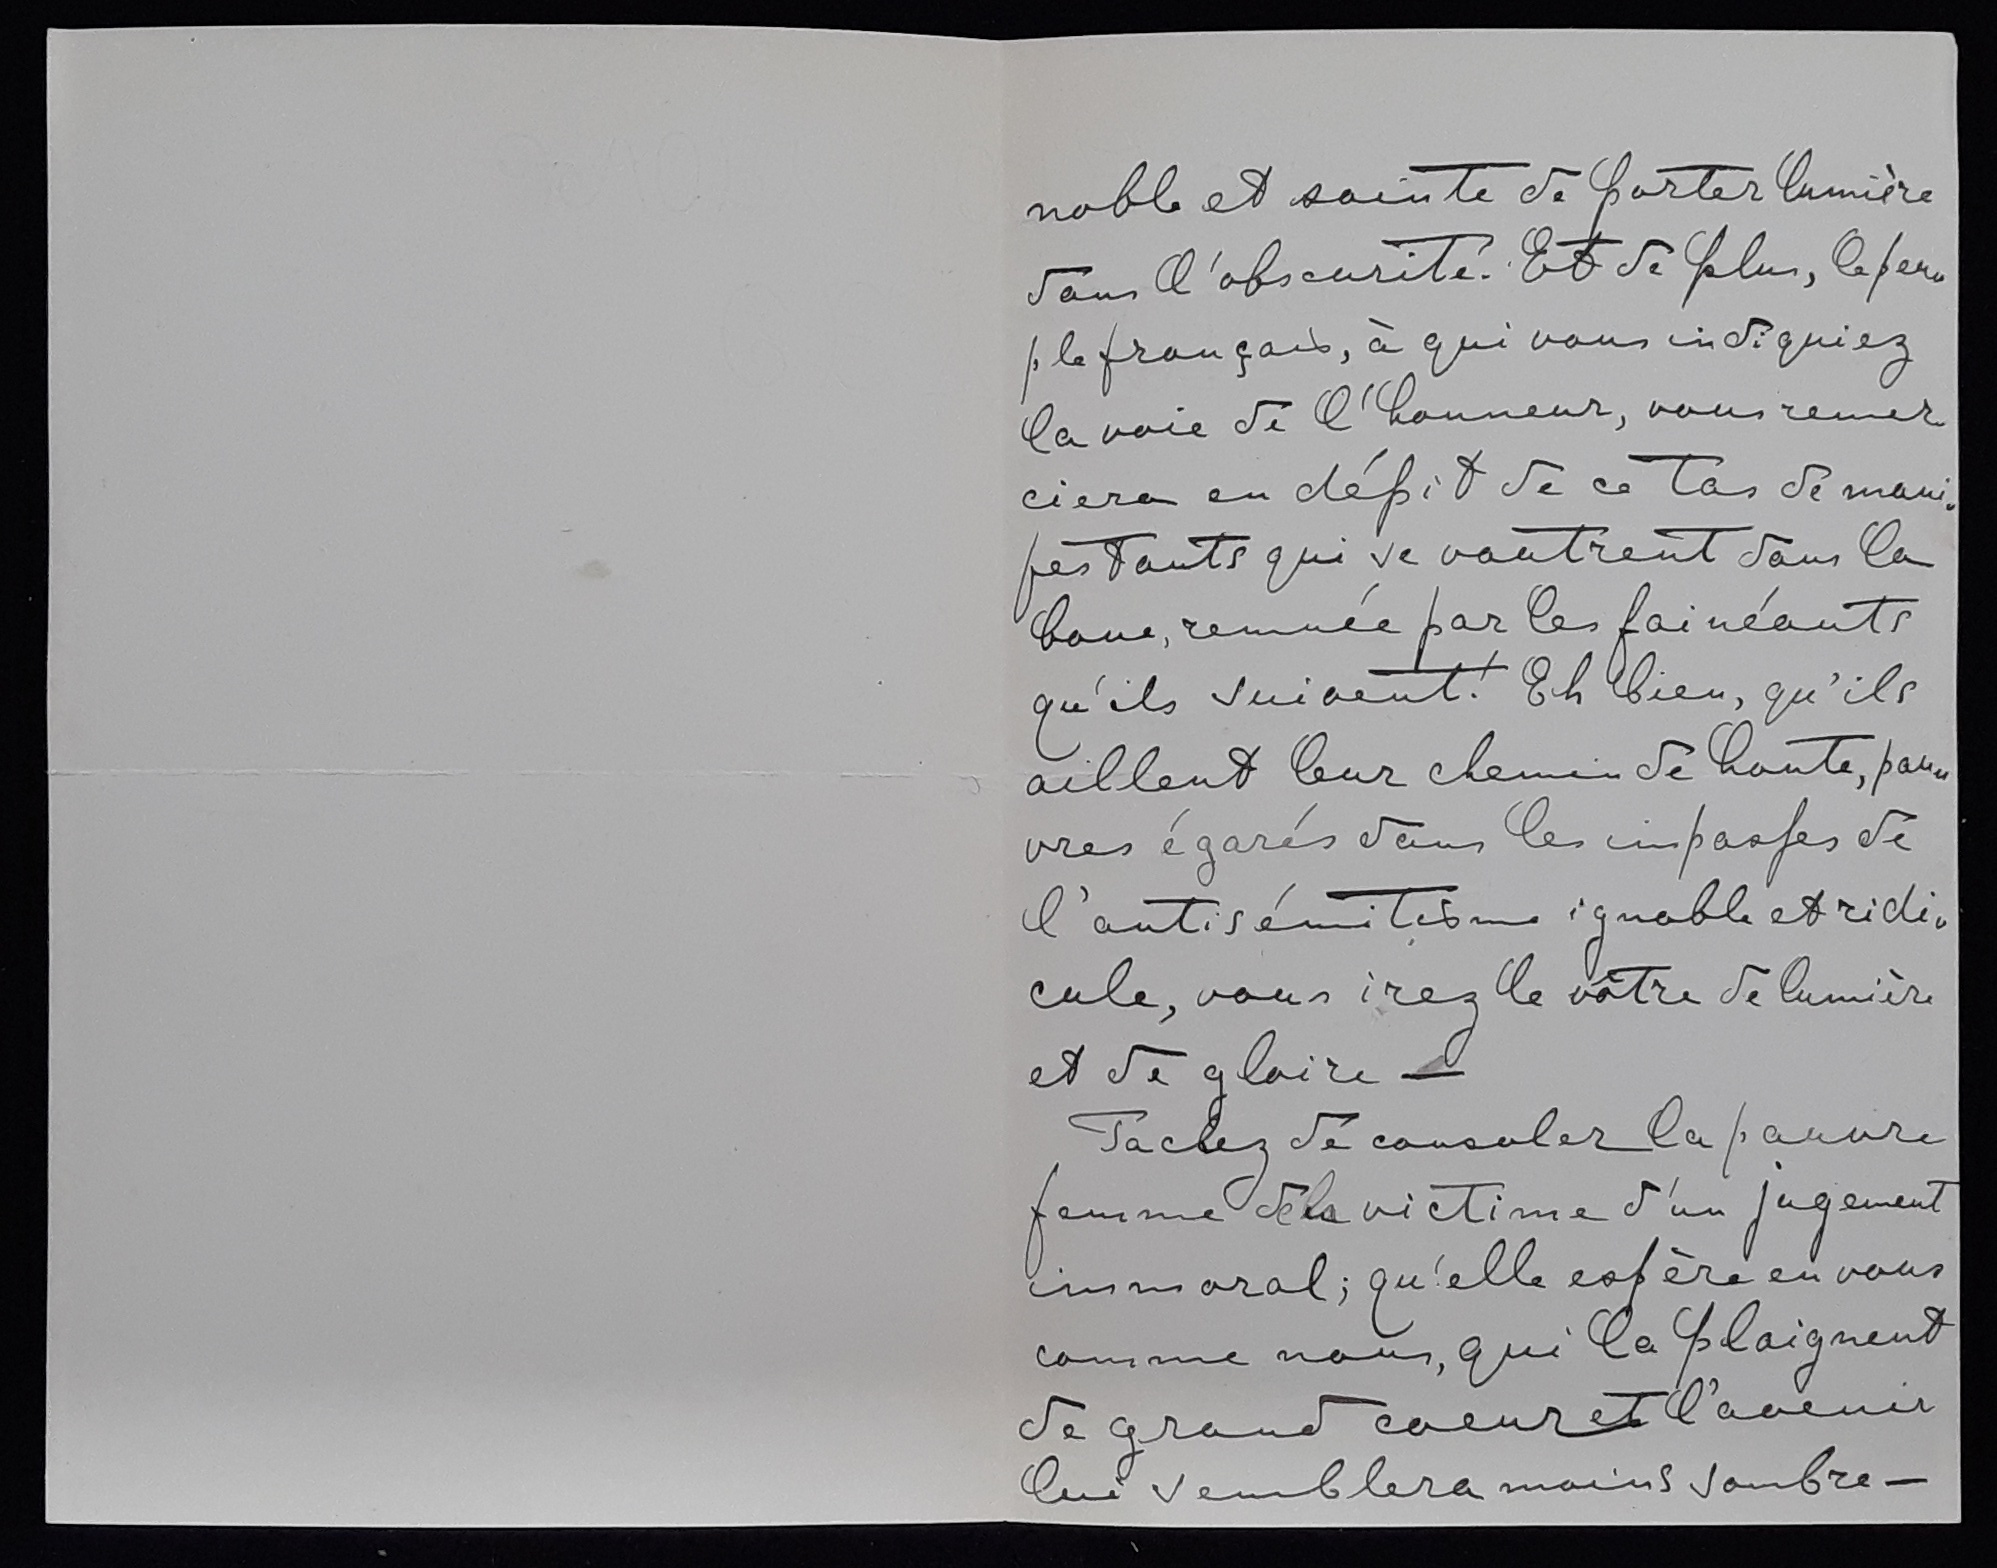 noble et sainte de porter lumière
dans l'obscurité. Et de plus, le peu
ple français, à qui vous indiquiez
la voie de l'honneur, vous remer
ciera en dépit de ce tas de mani-
festants qui se vautrent dans la
boue, remuée par les fainéants
qu'ils suivent! Eh bien, qu'ils
aillent leur chemin de honte, pau
vres égarés dans les impasses de
l'antisémitisme ignoble et ridi-
cule, vous irez le vôtre de lumière
et de gloire —
Tachez de consoler la pauvre
femme de la victime d'un jugement
immoral; qu'elle espère en vous
comme nous, qui la plaignent
de grand coeur et l'avenir
lui semblera moins sombre —